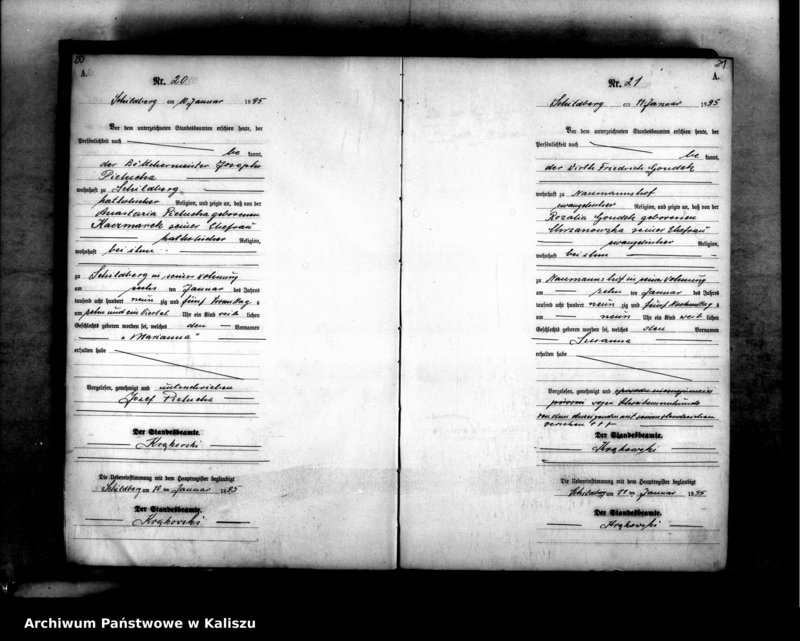 20
A.
Nr. 20
Schildberg am 10 Januar 1895
Vor dem unterzeichneten Standesbeamten erschien heute, der
Persönlichkeit nach
be kannt,
der Böttchermeister Joseph
Pietucha
wohnhaft zu Schildberg
katholischer Religion, und zeigte an, daß von der
Anastasia Pietucha geborenen
Kaczmarek seiner Ehefrau
katholischer Religion,
wohnhaft bei ihm
zu Schildberg in seiner Wohnung
am ten Januar des Jahres
tausend acht hundert neun zig und fünf Vormittag s
um zehn und ein Viertel Uhr ein Kind weib lichen
Geschlechts geboren worden sei, welches den Vornamen
„Marianna"
erhalten habe
Vorgelesen, genehmigt und unterschrieben
Josef Pietucha
Der Standesbeamte.
Krąkowski
Die Uebereinstimmung mit dem Hauptregister beglaubigt
Schildberg am 10 ten Januar 1895
Der Standesbeamte.
Krąkowski
21
A.
Nr. 21
Schildberg am 11 Januar 1895
Vor dem unterzeichneten Standesbeamten erschien heute, der
Persönlichkeit nach
be kannt,
der Wirth Friedrich Gondek
wohnhaft zu Naumannshof
evangelischer Religion, und zeigte an, daß von der
Rozalia Gondek geborenen
Chrzanowska seiner Ehefrau
evangelischer Religion,
wohnhaft bei ihm
zu Naumannshof in seiner Wohnung
am zehn ten Januar des Jahres
tausend acht hundert neun zig und fünf Nachmittag s
um neun Uhr ein Kind weib lichen
Geschlechts geboren worden sei, welches den Vornamen
Susanna
erhalten habe
Vorgelesen, genehmigt und
wegen Schreibensunkunde
von dem Anzeigenden mit seinem Handzeichen
versehen + + +
Der Standesbeamte.
Krąkowski
Die Uebereinstimmung mit dem Hauptregister beglaubigt
Schildberg am 11 ten Januar 1895
Der Standesbeamte.
Krąkowski
Archiwum Państwowe w Kaliszu